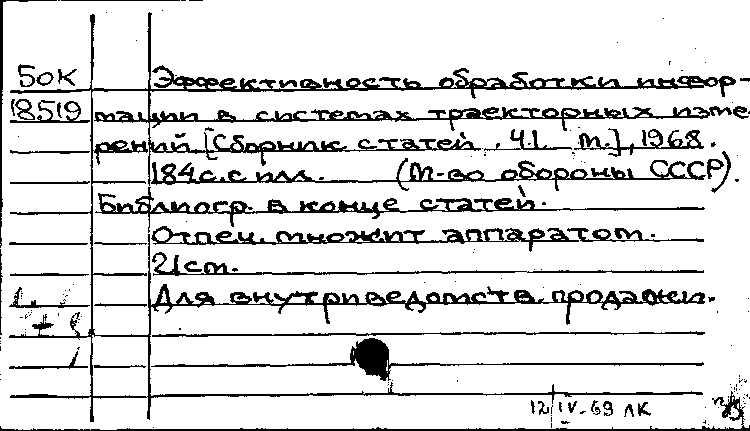 БОК Эффективность обработки инфор-
18519 мации в системах траекторных изме
рений. [Сборник статей. Ч.1. М.], 1968.
184 с. с илл. (М-во обороны СССР).
Библиогр. в конце статей.
Отпеч. множит аппаратом.
21 см.
Для внутриведомств. продажи.
12/IV-69 ЛК